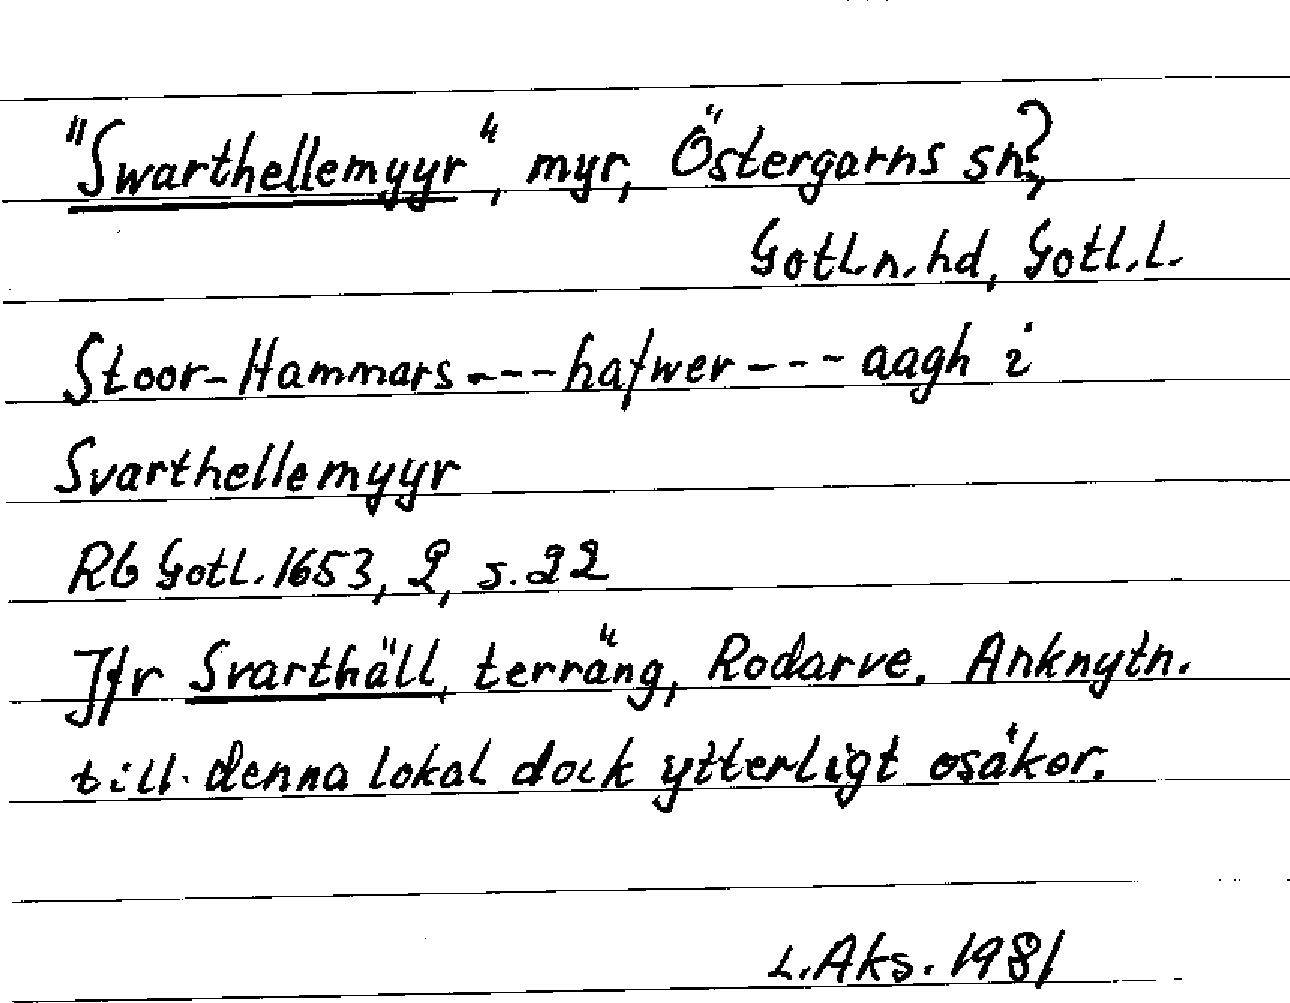 "Swarthellemyyr", myr, Östergarns sn?,
Gotl.n.hd, Gotl.l.
Stoor-Hammars---hafwer---aagh i
Svarthellemyyr
Rb Gotl.1653, 2, s.22
Jfr Svarthäll, terräng, Rodarve. Anknytn.
till denna lokal dock ytterligt osäker.
L.Aks.1981